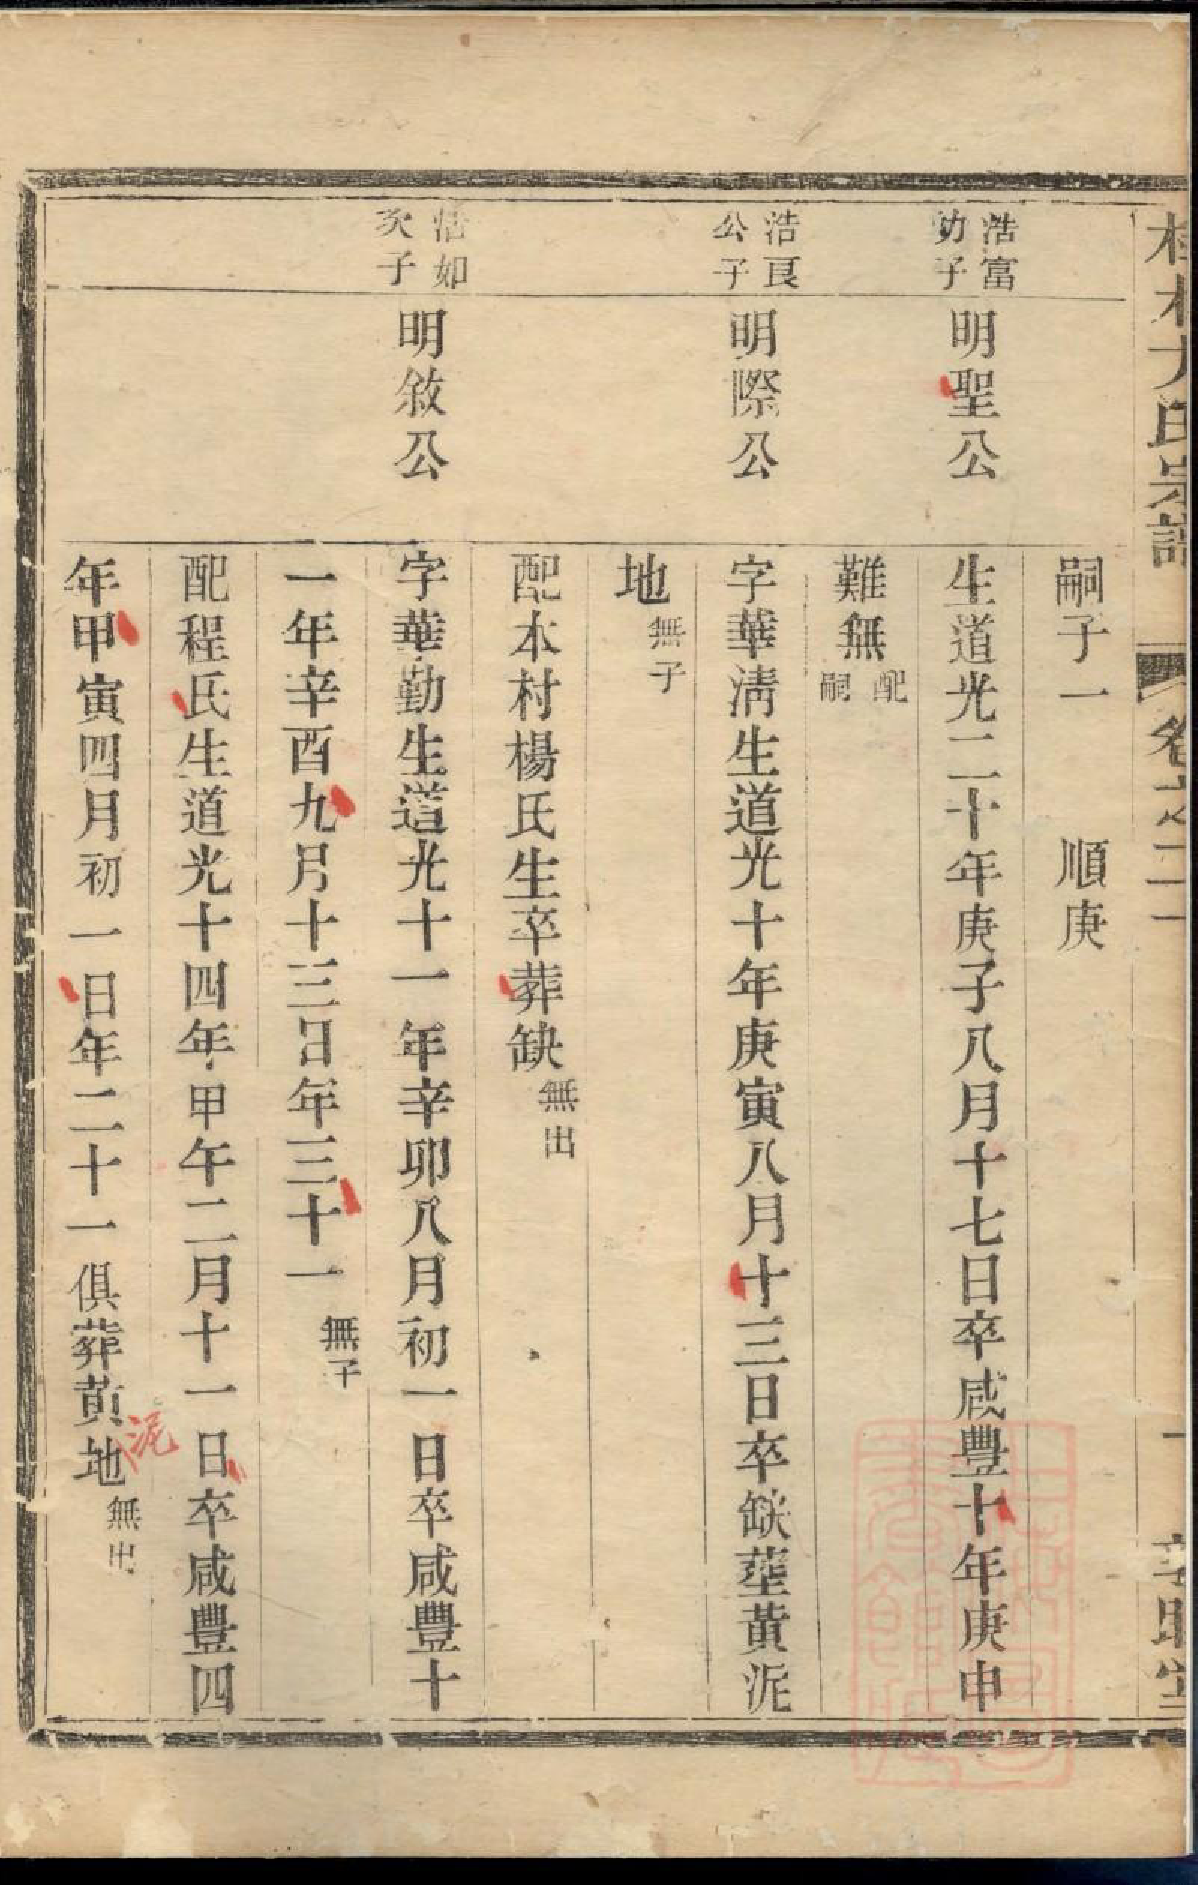 氏宗譜 卷之二
嗣子一 順庚
浩富
幼子
明聖公
生道光二十年庚子八月十七日卒咸豐十年庚申
難無配
嗣
浩良
公子
明際公
字華淸生道光十年庚寅八月十三日卒缺塟黃泥
地無子
配本村楊氏生卒葬缺無出
浩如
次子
明敘公
字華勤生道光十一年辛卯八月初一日卒咸豐十
一年辛酉九月十三日年三十一無子
配程氏生道光十四年甲午二月十一日卒咸豐四
年甲寅四月初一日年二十一俱葬黃泥地無出